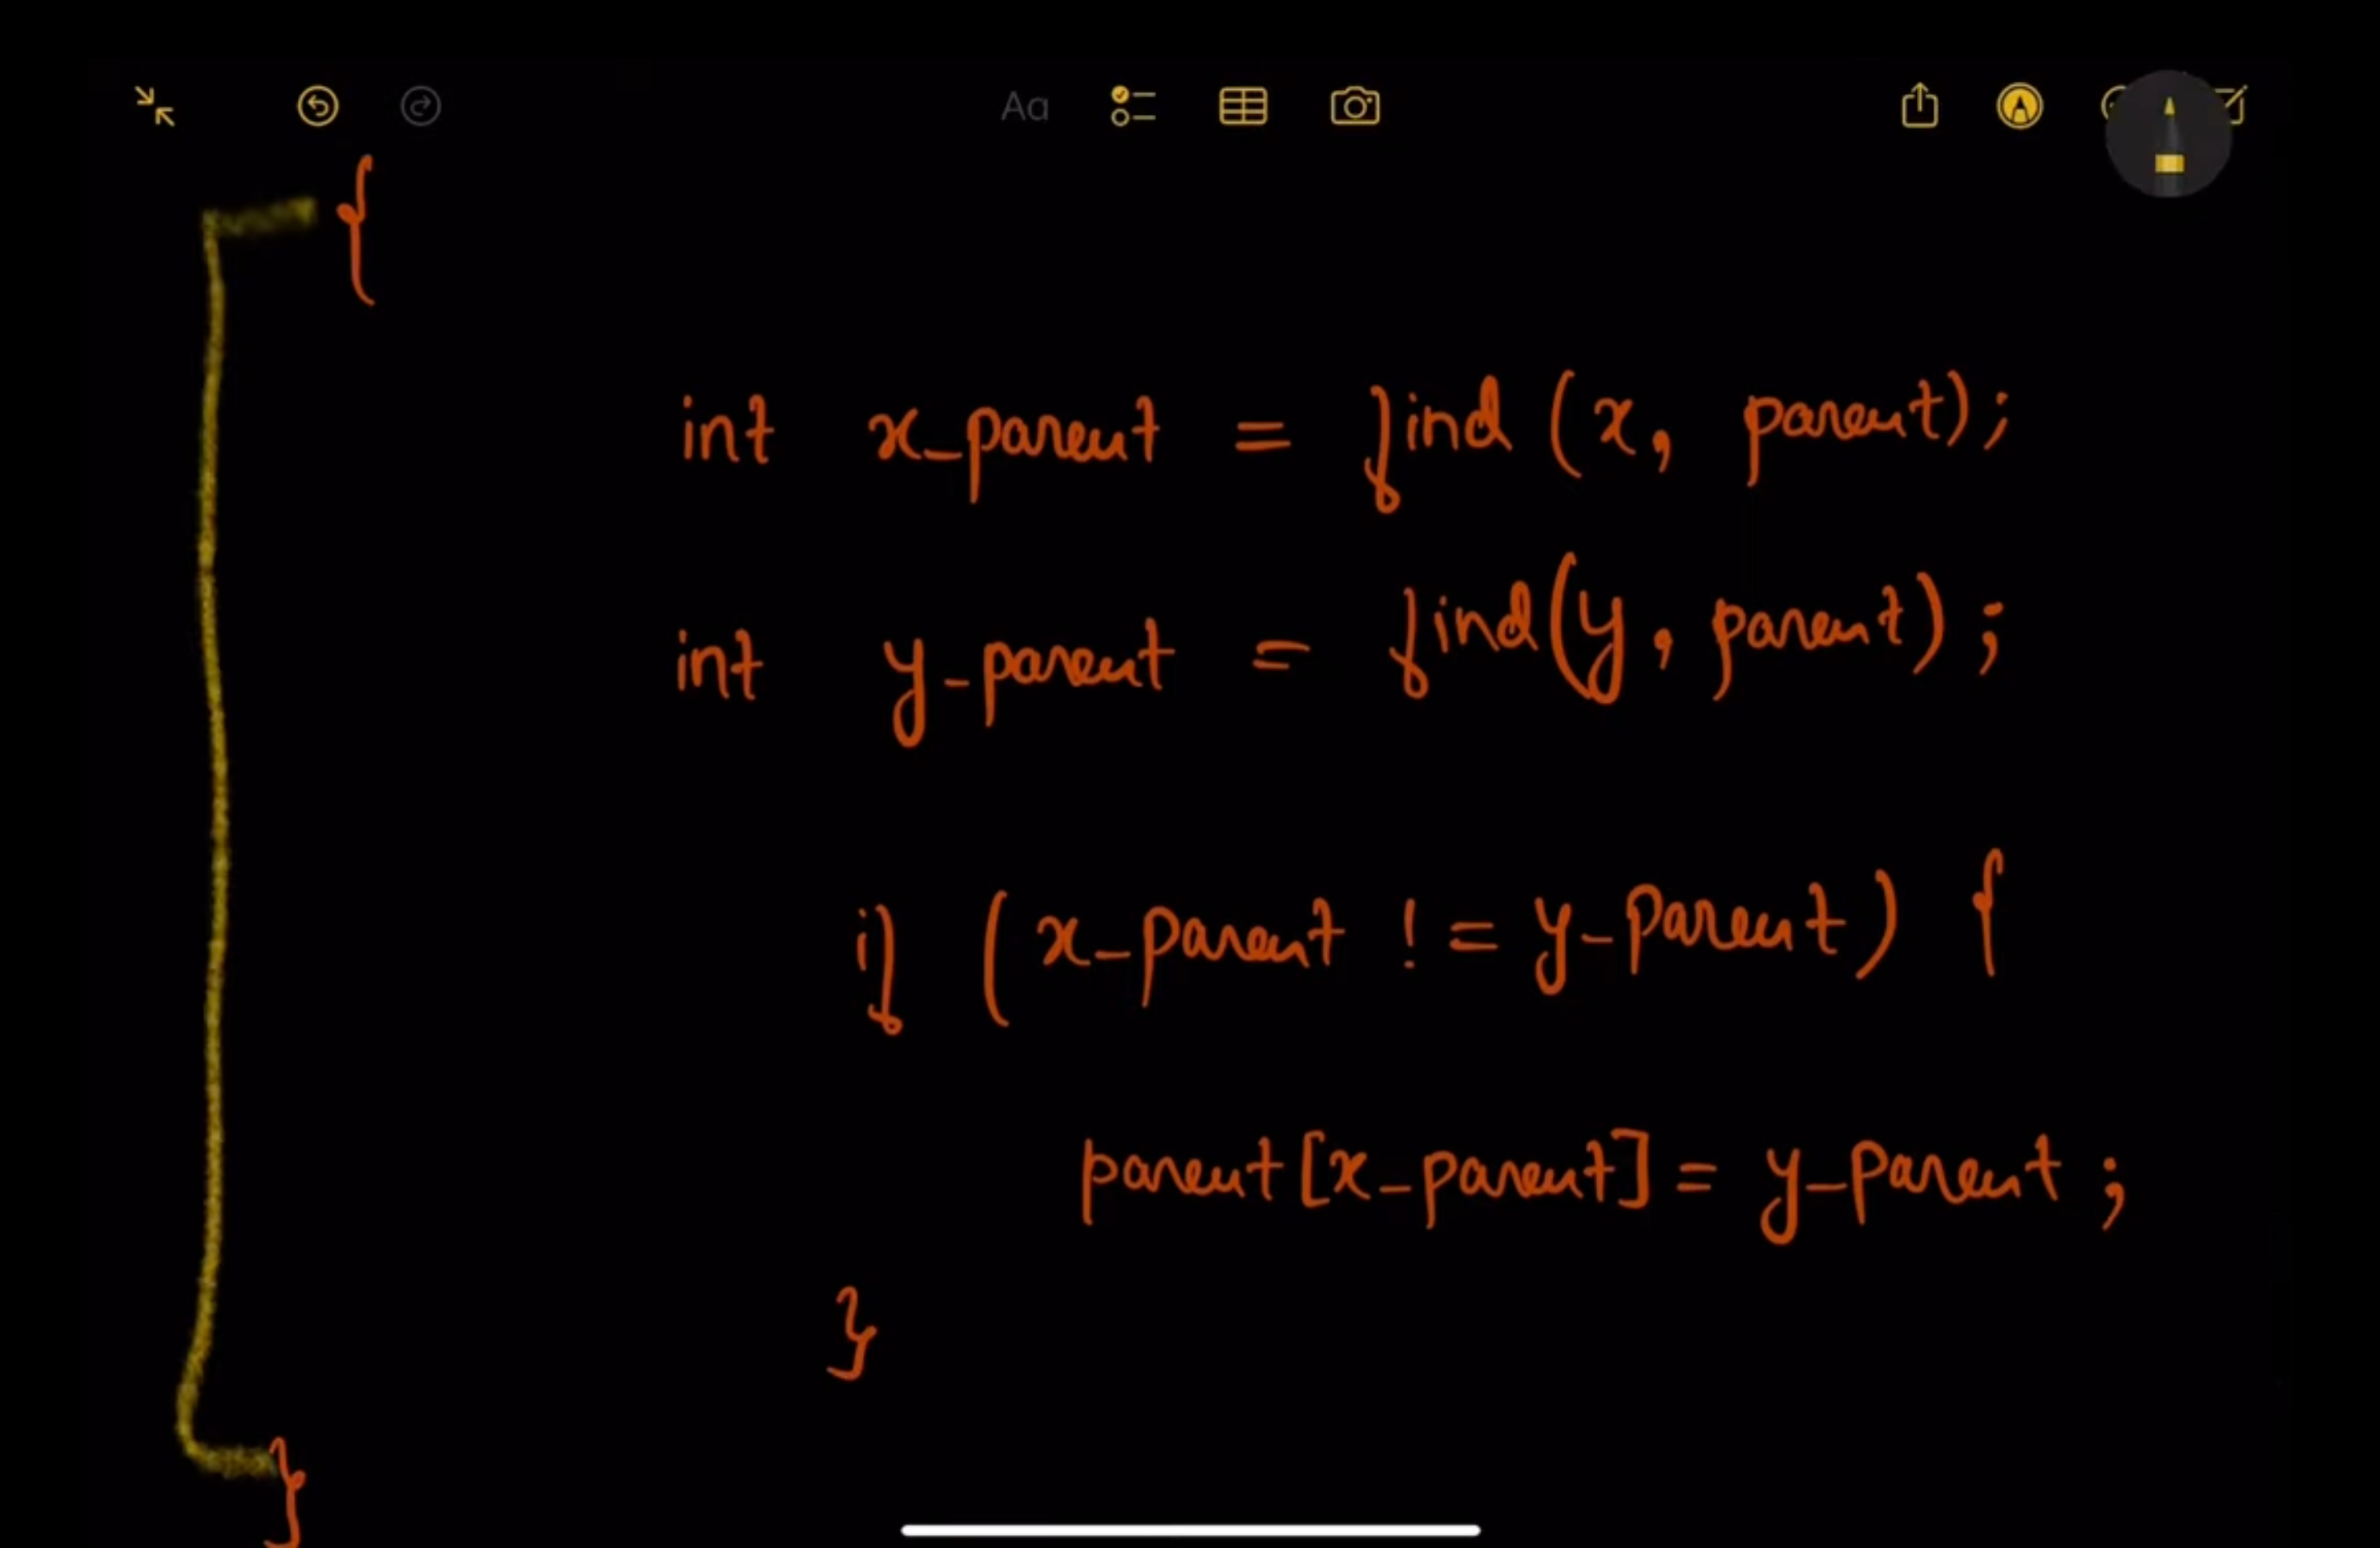 Aa
{
int x_parent = find (x, parent);
int y_parent = find(y, parent);
if (x_parent != y_parent) {
parent[x_parent] = y_parent;
}
}